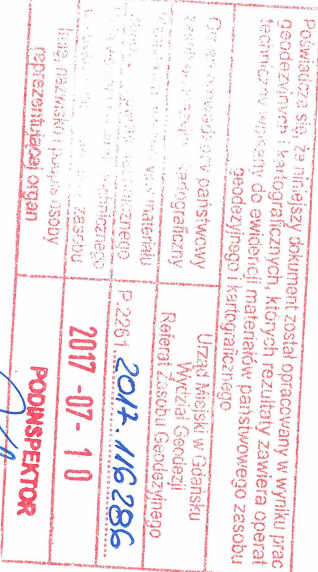 Poświadcza się, że niniejszy dokument został opracowany w wyniku prac
geodezyjnych i kartograficznych, których rezultaty zawiera operat
techniczny wpisany do ewidencji materiałów państwowego zasobu
geodezyjnego i kartograficznego
państwowy
kartograficzny
Urząd Miejski w Gdańsku
Wydział Geodezji
Referat Zasobu Geodezyjnego
materiału
zasobu
P.2261. 2017.116286
2017 -07- 10
Imię, nazwisko i podpis osoby
reprezentującej organ
PODINSPEKTOR